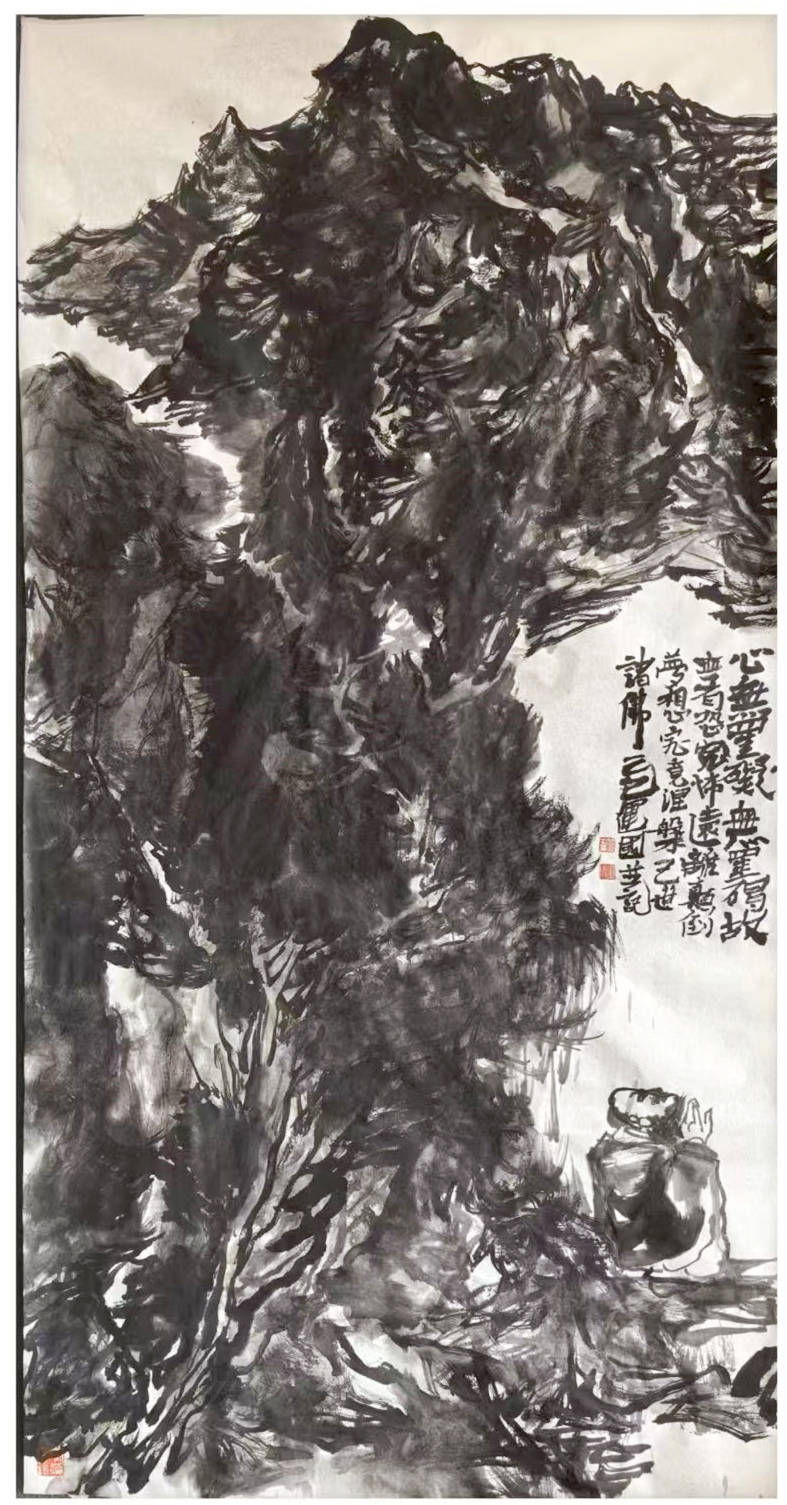 心無罣礙無罣碍故
無有恐怖遠離顛倒
夢想究竟涅槃世
諸佛建國並記